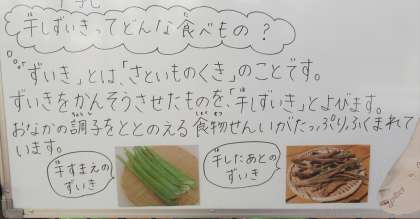 干しずいきってどんな食べもの？
「ずいき」とは、「さといものくき」のことです。
ずいきをかんそうさせたものを、「干しずいき」とよびます。
おなかの調子をととのえる食物せんいがたっぷりふくまれて
います。
干すまえの
ずいき
干したあとの
ずいき